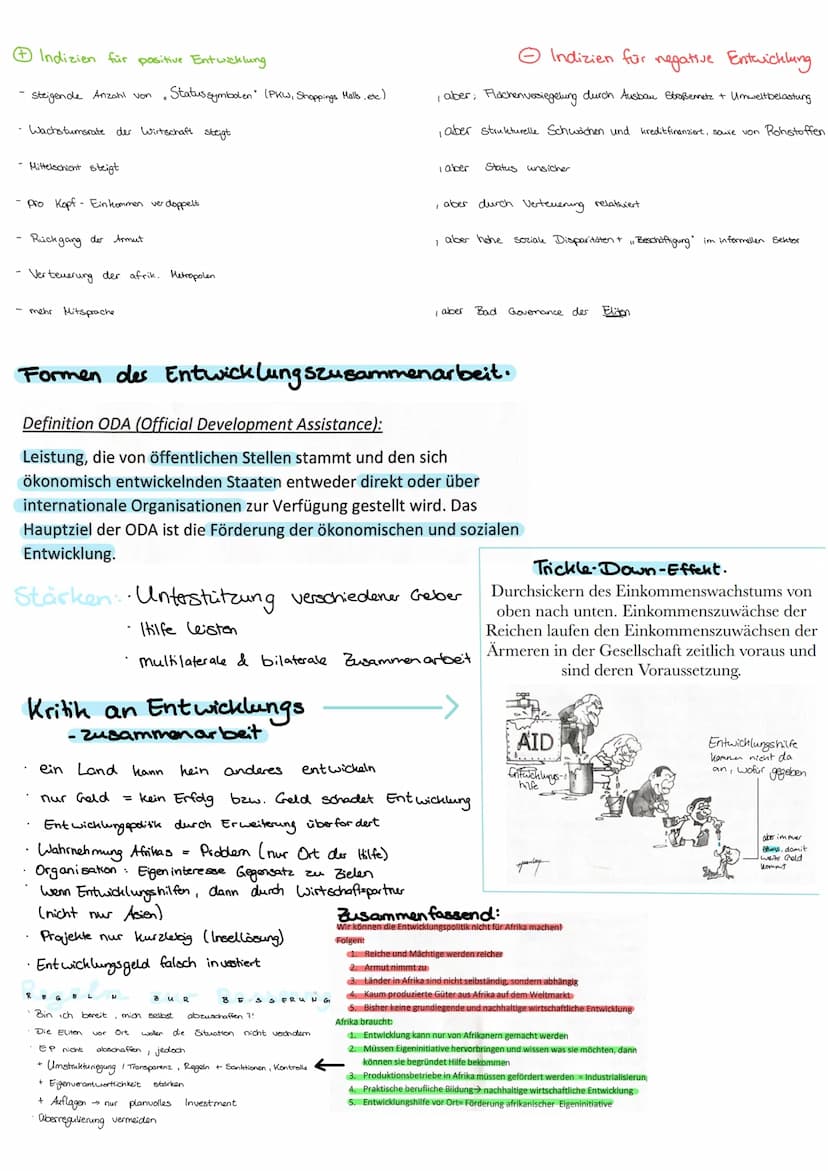 + Indizien für positive Entwicklung
- Indizien für negative Entwicklung
- steigende Anzahl von „Statussymbolen" (PKW, Shoppings Malls etc)
, aber: Flächenversiegelung durch Ausbau Straßennetz + Umweltbelastung
- Wachstumsrate der Wirtschaft steigt
, aber strukturelle Schwächen und kreditfinanziert, sowie von Rohstoffen
- Mittelschicht steigt
, aber Status unsicher
- pro Kopf - Einkommen verdoppelt
, aber durch Verteuerung relativiert
- Rückgang der Armut
, aber hohe soziale Disparitäten + „Beschäftigung" im informellen Sektor
- Verteuerung der afrik. Metropolen
- mehr Mitsprache
, aber Bad Governance der Eliten
Formen der Entwicklungszusammenarbeit.
Definition ODA (Official Development Assistance):
Leistung, die von öffentlichen Stellen stammt und den sich
ökonomisch entwickelnden Staaten entweder direkt oder über
internationale Organisationen zur Verfügung gestellt wird. Das
Hauptziel der ODA ist die Förderung der ökonomischen und sozialen
Entwicklung.
Stärken: · Unterstützung verschiedener Geber
· Hilfe leisten
· multilaterale & bilaterale Zusammenarbeit
Trickle-Down-Effekt.
Durchsickern des Einkommenswachstums von
oben nach unten. Einkommenszuwächse der
Reichen laufen den Einkommenszuwächsen der
Ärmeren in der Gesellschaft zeitlich voraus und
sind deren Voraussetzung.
AID
Entwicklungs-
hilfe
Entwicklungshilfe
kommen nicht da
an, wofür gegeben
aber immer
damit
weite Geld
kommt
Kritik an Entwicklungs
-zusammenarbeit
· ein Land kann kein anderes entwickeln
· nur Geld = kein Erfolg bzw. Geld schadet Entwicklung
· Entwicklungspolitik durch Erweiterung überfordert
· Wahrnehmung Afrikas = Problem (nur Ort der Hilfe)
· Organisation: Eigeninteresse Gegensatz zu Zielen
· Wenn Entwicklungshilfen, dann durch Wirtschaftspartner
(nicht nur Asien)
· Projekte nur kurzlebig (Insellösung)
· Entwicklungsgeld falsch investiert
REGELN ZUR BESSERUNG
· Bin ich bereit, mich selbst abzuschaffen?!
· Die Eliten vor Ort wollen die Situation nicht verändern
· EP nicht abschaffen, jedoch
+ Umstrukturierung / Transparenz, Regeln + Sanktionen, Kontrolle
+ Eigenverantwortlichkeit stärken
+ Auflagen → nur planvolles Investment
· Überregulierung vermeiden
Zusammenfassend:
Wir können die Entwicklungspolitik nicht für Afrika machen!
Folgen:
1. Reiche und Mächtige werden reicher
2. Armut nimmt zu
3. Länder in Afrika sind nicht selbständig, sondern abhängig
4. Kaum produzierte Güter aus Afrika auf dem Weltmarkt
5. Bisher keine grundlegende und nachhaltige wirtschaftliche Entwicklung
Afrika braucht:
1. Entwicklung kann nur von Afrikanern gemacht werden
2. Müssen Eigeninitiative hervorbringen und wissen was sie möchten, dann
können sie begründet Hilfe bekommen
3. Produktionsbetriebe in Afrika müssen gefördert werden = Industrialisierun
4. Praktische berufliche Bildung→ nachhaltige wirtschaftliche Entwicklung
5. Entwicklungshilfe vor Ort= Förderung afrikanischer Eigeninitiative